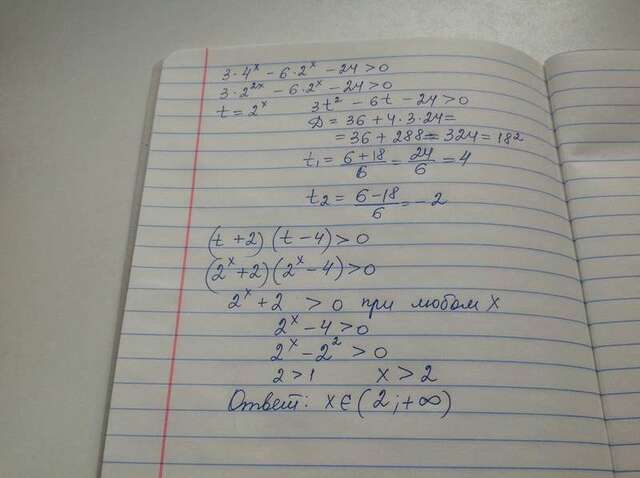 3·4ˣ − 6·2ˣ − 24 > 0
3·2²ˣ − 6·2ˣ − 24 > 0
t = 2ˣ 3t² − 6t − 24 > 0
D = 36 + 4·3·24 =
= 36 + 288 = 324 = 18²
t₁ = (6+18)/6 = 24/6 = 4
t₂ = (6−18)/6 = −2
(t + 2)(t − 4) > 0
(2ˣ + 2)(2ˣ − 4) > 0
2ˣ + 2 > 0 при любом x
2ˣ − 4 > 0
2ˣ − 2² > 0
2 > 1 x > 2
Ответ: x ∈ (2; +∞)